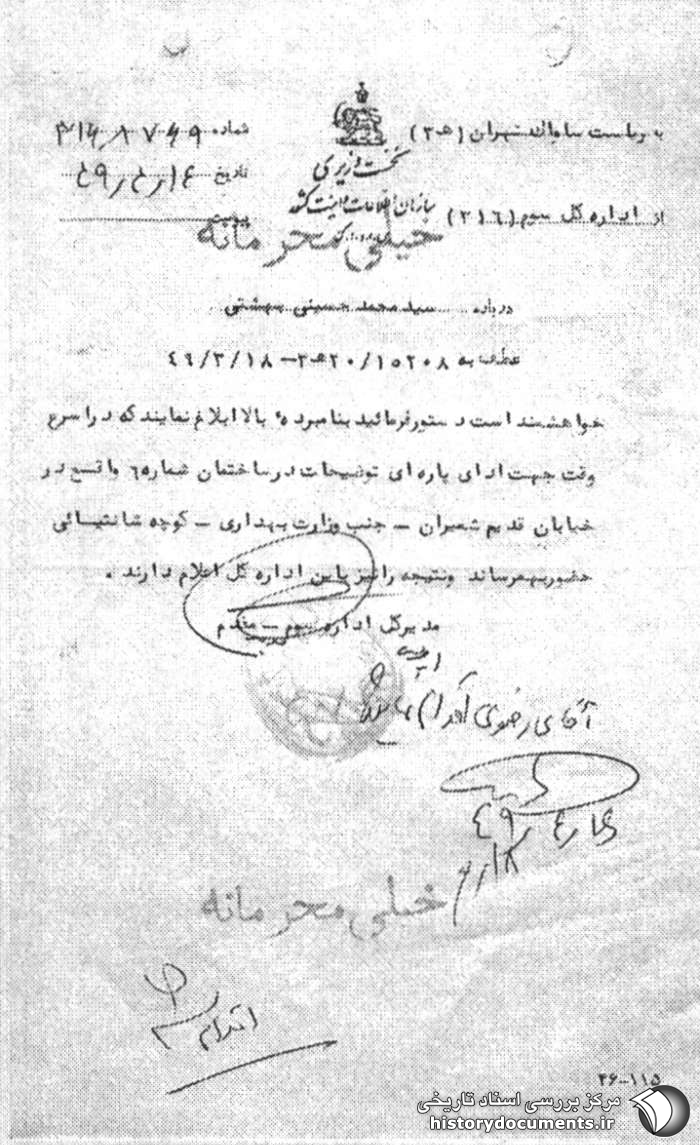 به ریاست ساواک تهران (۳ھ)
از اداره کل سوم (۳۱۶)
نخست وزیری
سازمان اطلاعات و امنیت کشور
شماره
تاریخ
پیوست
خیلی محرمانه
درباره سید محمد حسینی بهشتی
عطف به ۲۰/۱۵۲۰۸ھ۳–۴۹/۳/۱۸
خواهشمند است دستور فرمائید بنامبرده بالا ابلاغ نمایند که در اسرع
وقت جهت ادای پاره ای توضیحات در ساختمان شماره ۶ واقع در
خیابان قدیم شمیران – جنب وزارت بهداری – کوچه شانتیائی
حضور بهمرساند ونتیجه را نیز باین اداره کل اعلام دارند .
مدیرکل اداره سوم – مقدم
آقای رضوی اقدام
۴۹
خیلی محرمانه
اقدام
۳۶–۱۱۵
مرکز بررسی اسناد تاریخی
historydocuments.ir